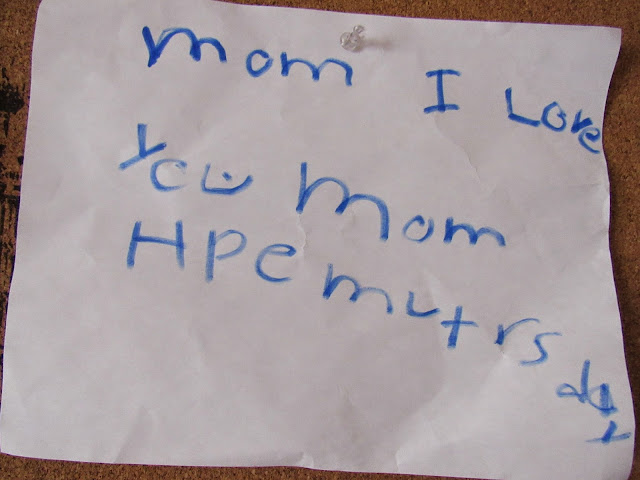 mom I Love
You Mom
HPe mutrs day